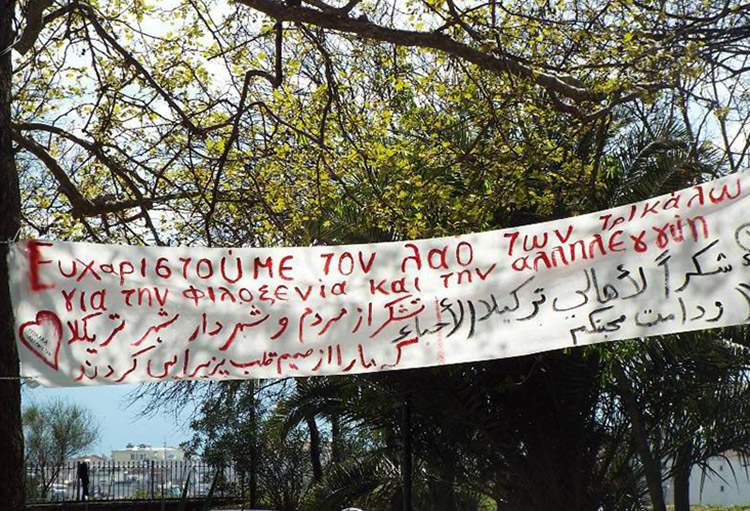 Ευχαριστούμε τον λαό των τρικάλων
για την φιλοξενία και την αλληλεγγύη
تشکر از مردم و شهردار شهر تریکلا
که مارا از صمیم قلب پزیرایی کردند
شكراً لأهالي تركيلا الأحباء
ودامت محبتكم